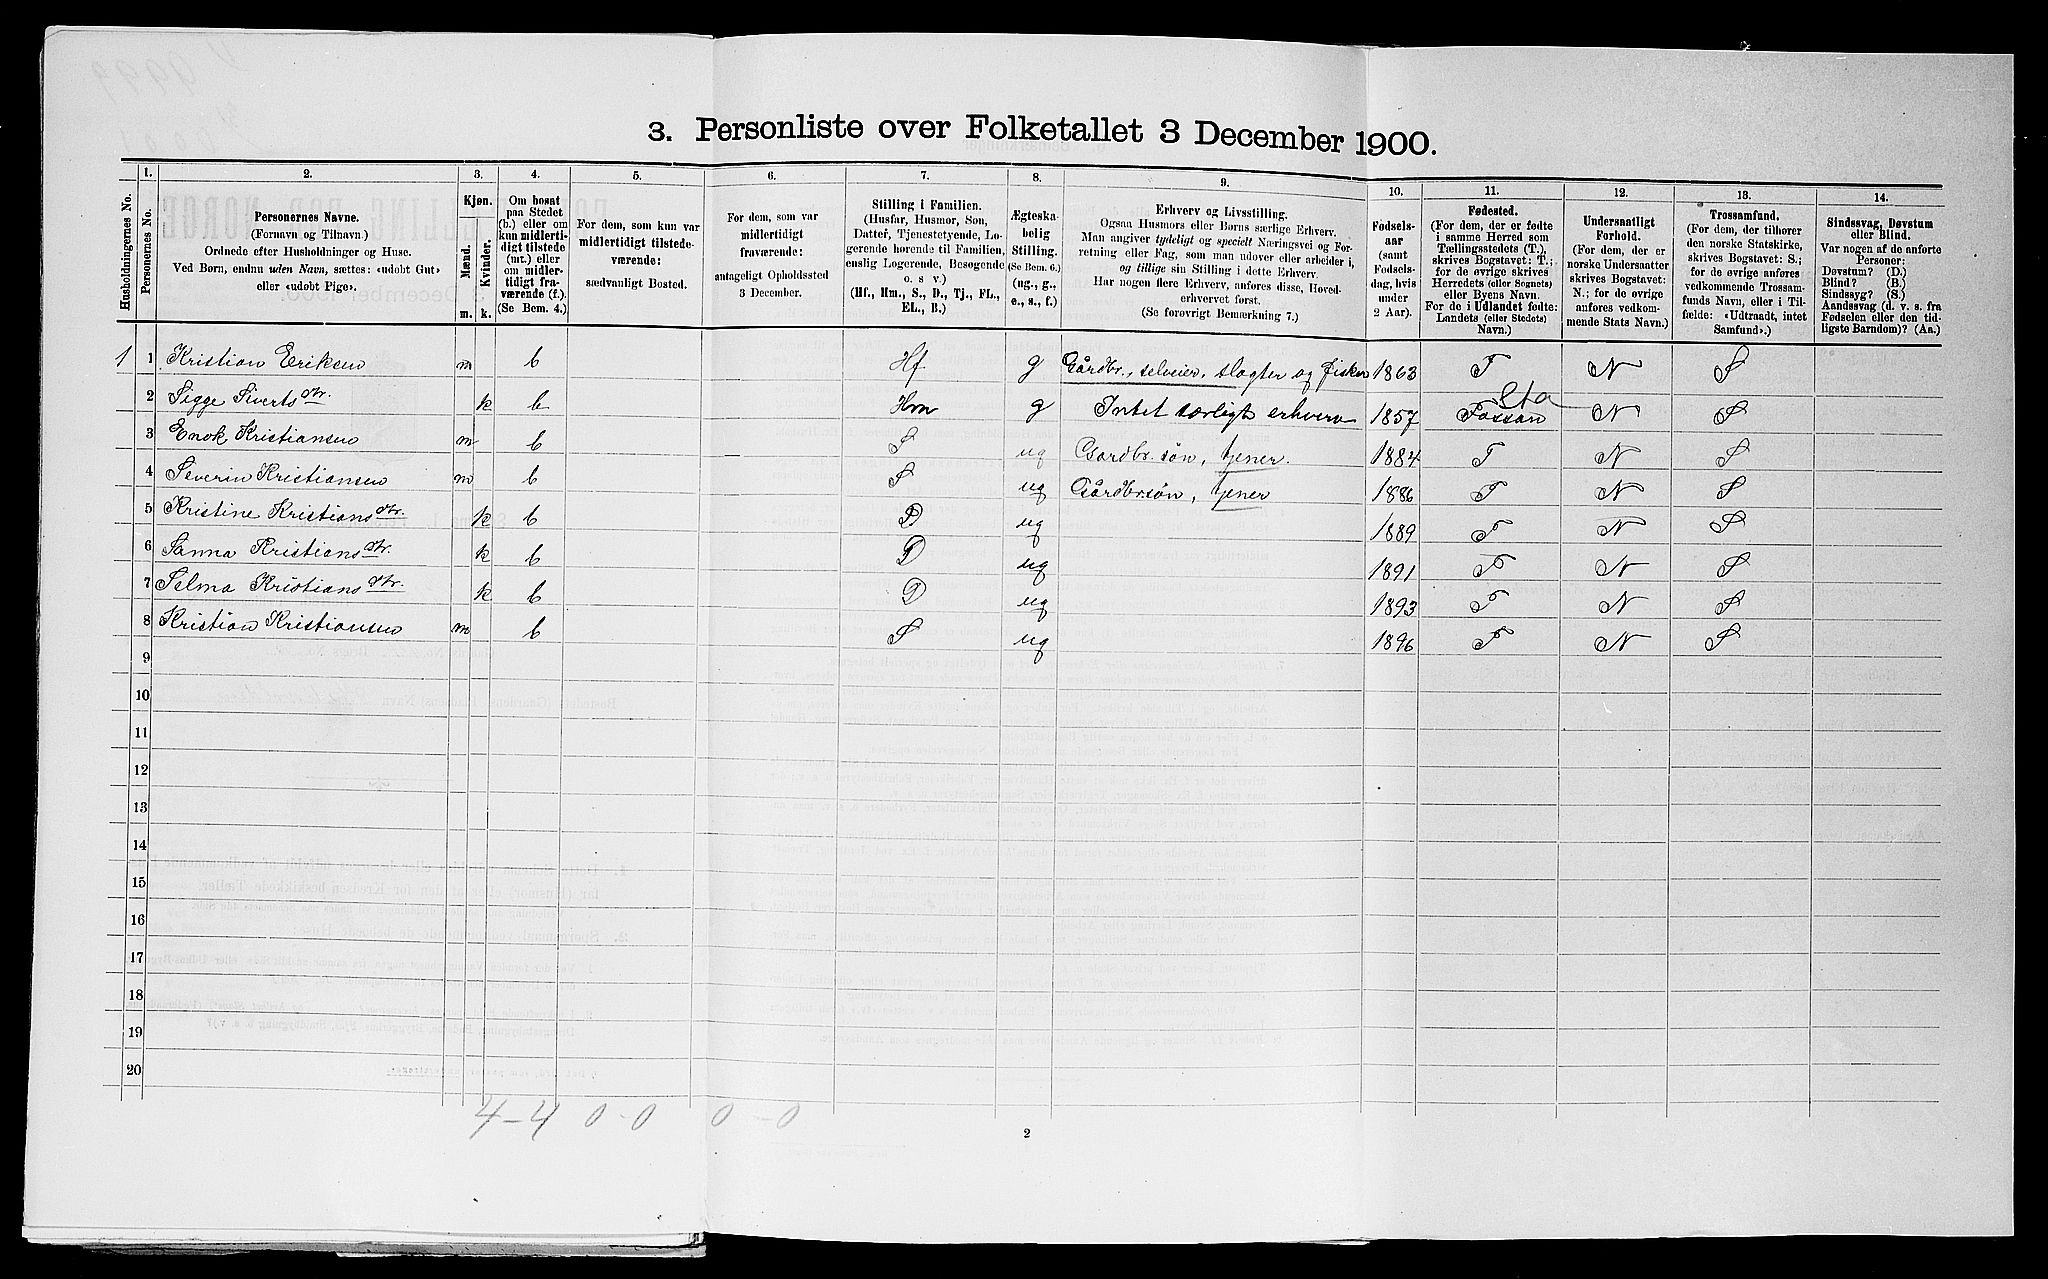 3. Personliste over Folketallet 3 December 1900.
Husholdningernes No.
1.
Personernes No.
2.
Personernes Navne.
(Fornavn og Tilnavn.)
Ordnede efter Husholdninger og Huse.
Ved Børn, endnu uden Navn, sættes: «udøbt Gut»
eller «udøbt Pige».
3.
Kjøn.
Mænd.
m.
Kvinder.
k.
4.
Om bosat
paa Stedet
(b.) eller om
kun midlerti-
digt tilstede
(mt.) eller
om midler-
tidigt fra-
værende (f.).
(Se Bem. 4.)
5.
For dem, som kun var
midlertidigt tilstede-
værende:
sædvanligt Bosted.
6.
For dem, som var
midlertidigt
fraværende:
antageligt Opholdssted
3 December.
7.
Stilling i Familien.
(Husfar, Husmor, Søn,
Datter, Tjenestetyende, Lo-
gerende hørende til Familien,
enslig Logerende, Besøgende
o. s. v.)
(Hf., Hm., S., D., Tj., FL.,
EL., B.)
8.
Ægteska-
belig
Stilling.
(Se Bem. 6.)
(ug., g.,
e., s., f.)
9.
Erhverv og Livsstilling.
Ogsaa Husmors eller Børns særlige Erhverv.
Man angiver tydeligt og specielt Næringsvei og For-
retning eller Fag, som man udøver eller arbeider i,
og tillige sin Stilling i dette Erhverv.
Har nogen flere Erhverv, anføres disse, Hoved-
erhvervet først.
(Se forøvrigt Bemærkning 7.)
10.
Fødsels-
aar
(samt
Fødsels-
dag, hvis
under
2 Aar).
11.
Fødested.
(For dem, der er fødte
i samme Herred som
Tællingsstedets (T.),
skrives Bogstavet: T.;
for de øvrige skrives
Herredets (eller Sognets)
eller Byens Navn.
For de i Udlandet fødte:
Landets (eller Stedets)
Navn.)
12.
Undersaatligt
Forhold.
(For dem, der er
norske Undersaatter
skrives Bogstavet:
N.; for de øvrige
anføres vedkom-
mende Stats Navn.)
13.
Trossamfund.
(For dem, der tilhører
den norske Statskirke,
skrives Bogstavet: S.;
for de øvrige anføres
vedkommende Trossam-
funds Navn, eller i Til-
fælde: «Udtraadt, intet
Samfund».)
14.
Sindssvag, Døvstum
eller Blind.
Var nogen af de anførte
Personer:
Døvstum? (D.)
Blind? (B.)
Sindssyg? (S.)
Aandssvag (d. v. s. fra
Fødselen eller den tid-
ligste Barndom)? (Aa.)
1 1 Kristian Eriksen m b Hf g Gårdbr., selveier, slagter og fisker 1863 T N S
2 Sigge Siverts dtr. k b Hm g Intet særligt erhverv 1857 Fossan Eta N S
3 Enok Kristiansen m b S ug Gardbr. søn, tjener. 1884 T N S
4 Severin Kristiansen m b S ug Gårdbr.søn, tjener 1886 T N S
5 Kristine Kristians dtr. k b D ug 1889 T N S
6 Sanna Kristians dtr. k b D ug 1891 T N S
7 Selma Kristians dtr. k b D ug 1893 T N S
8 Kristian Kristiansen m b S ug 1896 T N S
9
10
11
12
13
14
15
16
17
18
19
20
4-4 0-0 0-0
2